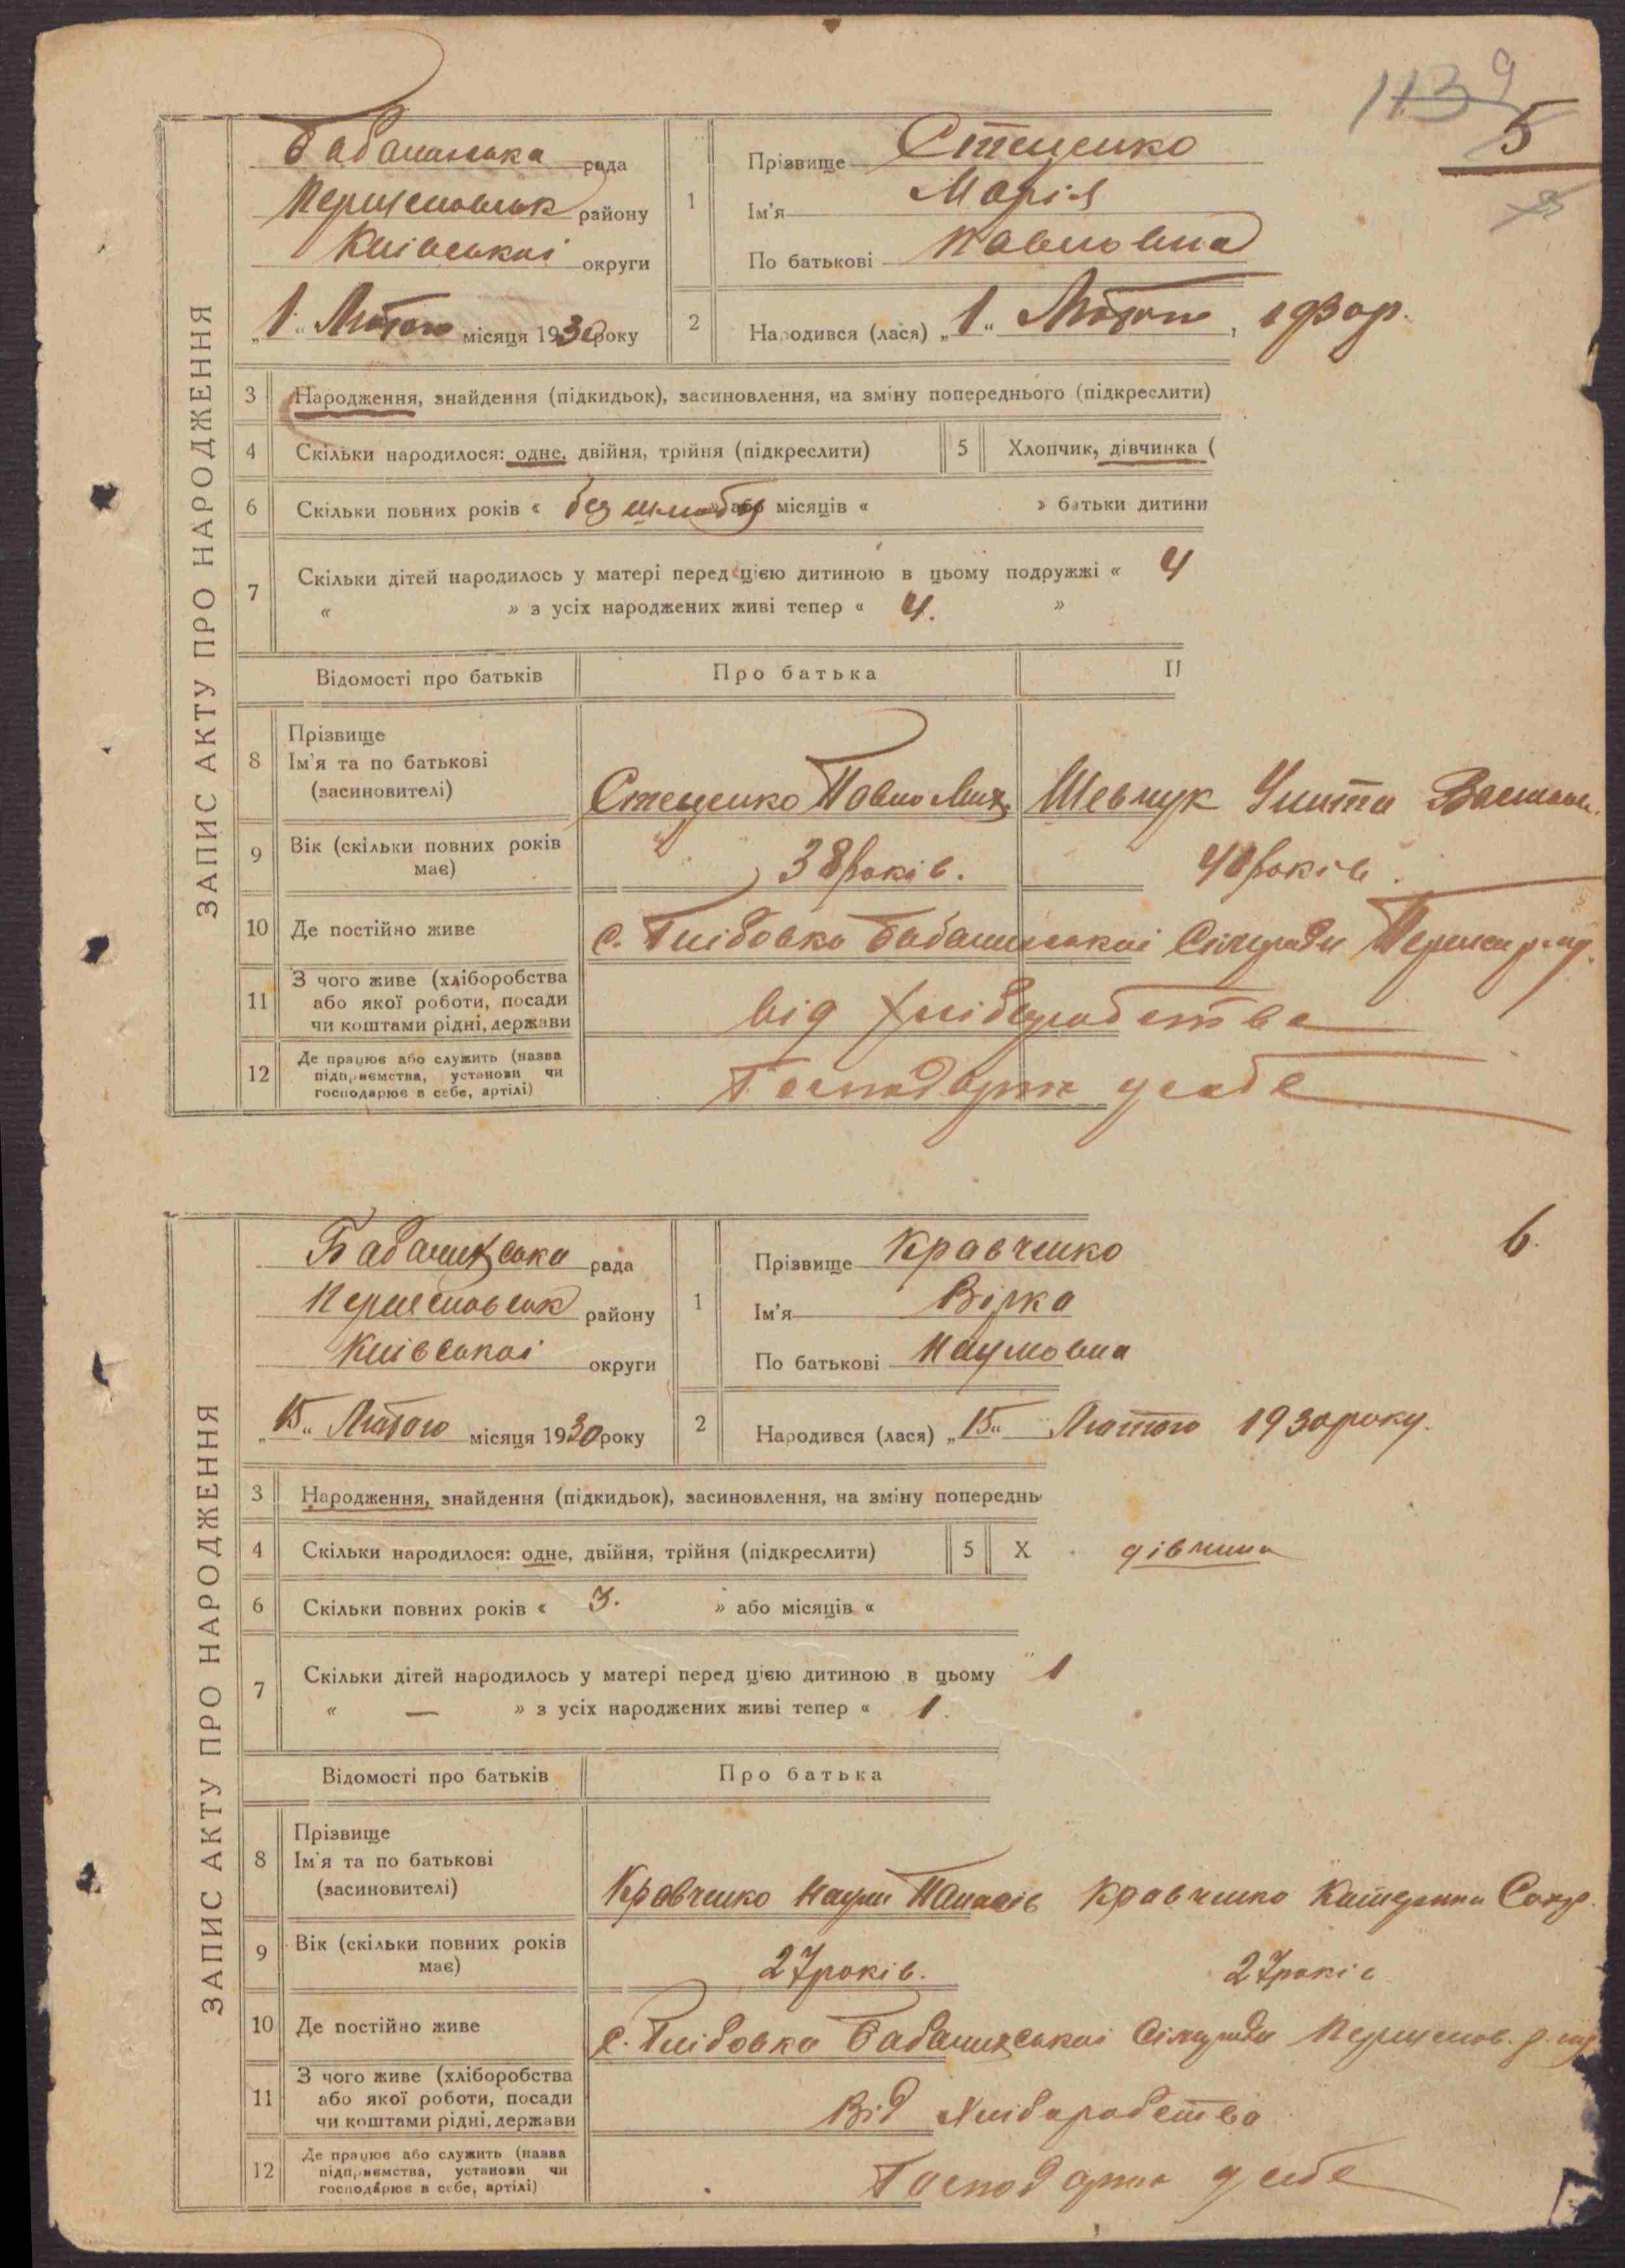 113 9
5
ЗАПИС АКТУ ПРО НАРОДЖЕННЯ
рада
району
Київської округи
„1“ Лютого місяця 1930 року
1 Прізвище Стеценко
Ім'я Марія
По батькові Павловна
2 Народився (лася) „1“ Лютого, 1930р.
3 Народження, знайдення (підкидьок), засиновлення, на зміну попереднього (підкреслити)
4 Скільки народилося: одне, двійня, трійня (підкреслити) 5 Хлопчик, дівчинка (
6 Скільки повних років « без шлюбу » або місяців « » батьки дитини
7 Скільки дітей народилось у матері перед цією дитиною в цьому подружжі « 4
« » з усіх народжених живі тепер « 4. »
Відомості про батьків Про батька П
8 Прізвище
Ім'я та по батькові
(засиновителі)
Стеценко Павло Мих. Шевчук
9 Вік (скільки повних років
має)
38 років. 40 років.
10 Де постійно живе с. Глібовка Сільради
11 З чого живе (хліборобства
або якої роботи, посади
чи коштами рідні, держави
від хліборобства
12 Де працює або служить (назва
підприємства, установи чи
господарює в себе, артілі)
у себе
6.
ЗАПИС АКТУ ПРО НАРОДЖЕННЯ
рада
району
Київської округи
„15“ Лютого місяця 1930 року
1 Прізвище Кравченко
Ім'я Вірка
По батькові Наумовна
2 Народився (лася) „15“ Лютого 1930 року.
3 Народження, знайдення (підкидьок), засиновлення, на зміну попереднь
4 Скільки народилося: одне, двійня, трійня (підкреслити) 5 Х дівчина
6 Скільки повних років « 3. » або місяців «
7 Скільки дітей народилось у матері перед цією дитиною в цьому 1
« — » з усіх народжених живі тепер « 1.
Відомості про батьків Про батька
8 Прізвище
Ім'я та по батькові
(засиновителі)
Кравченко Наум Панасів Кравченко
9 Вік (скільки повних років
має)
27 років. 27 років
10 Де постійно живе с. Глібовка Сільради
11 З чого живе (хліборобства
або якої роботи, посади
чи коштами рідні, держави
Від Хліборобства
12 Де працює або служить (назва
підприємства, установи чи
господарює в себе, артілі)
у себе